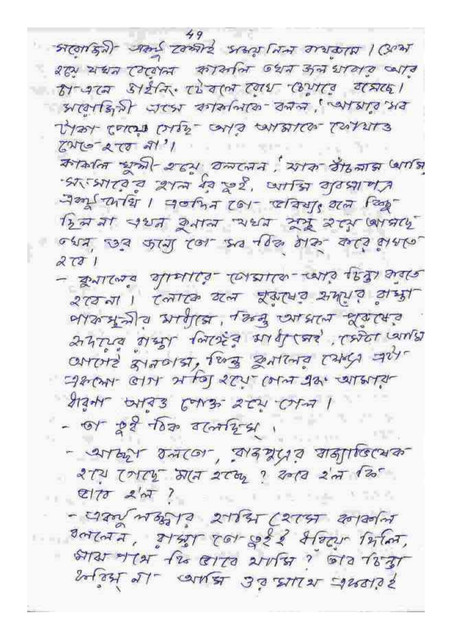 49
সরোজিনী একটু বেশীই সময় নিল বাথরুমে। ফ্রেশ
হয়ে যখন বেরোল কাকলি তখন জলখাবার আর
চা এনে ডাইনিং টেবলে রেখে চেয়ারে বসেছে।
সরোজিনী এসে কাকলিকে বলল! আমার সব
টাকা পেয়ে গেছি আর আমাকে কোথাও
যেতে হবে না'।
কাকলি খুশী হয়ে বললেন! যাক বাঁচলাম আমি,
সংসারের হাল ধর তুই, আমি ব্যবসাপত্র
একটু দেখি। এতদিন তো ভবিষ্যৎ বলে কিছু
ছিল না এখন কুনাল যখন সুস্থ হয়ে আসছে
তখন, ওর জন্যে তো সব ঠিক ঠাক করে রাখতে
হবে।
- কুনালের ব্যাপারে তোমাকে আর চিন্তা করতে
হবেনা। লোকে বলে পুরুষের হৃদয়ের রাস্তা
পাকস্থলীর মাধ্যমে, কিন্তু আসলে পুরুষের
হৃদয়ের রাস্তা লিঙ্গের মাধ্যমেই, সেটা আমি
আগেই জানতাম, কিন্তু কুনালের ক্ষেত্রে এটা
একশো ভাগ সত্যি হয়ে গেল এবং আমার
ধারনা আরও পোক্ত হয়ে গেল।
- তা তুই ঠিক বলেছিস্।
- আচ্ছা বলতো, রাজপুত্রের রাজ্যাভিষেক
হয়ে গেছে মনে হচ্ছে? কবে হল কি
ভাবে হল?
- একটু লজ্জার হাসি হেসে কাকলি
বললেন, রাস্তা তো তুইই ধরিয়ে দিলি,
মাঝ পথে কি ভাবে থামি? তার চিন্তা
করিস্ না আমি ওর সাথে একবারই